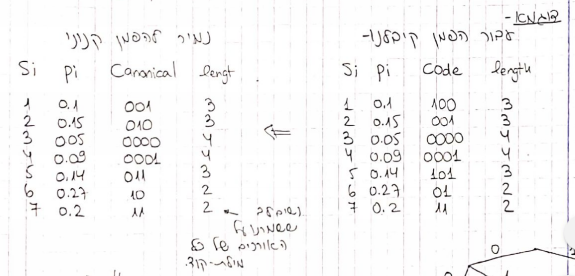 דוגמא-
עבור הפמן קיבלנו-
Si pi Code length
1 0.1 100 3
2 0.15 001 3
3 0.05 0000 4
4 0.09 0001 4
5 0.14 101 3
6 0.27 01 2
7 0.2 11 2
⇐
נמיר להפמן קנוני
Si pi Canonical lengt
1 0.1 001 3
2 0.15 010 3
3 0.05 0000 4
4 0.09 0001 4
5 0.14 011 3
6 0.27 10 2
7 0.2 11 2
נשים לב
ששמרנו על
האורכים של כל
מילת-קוד.
0